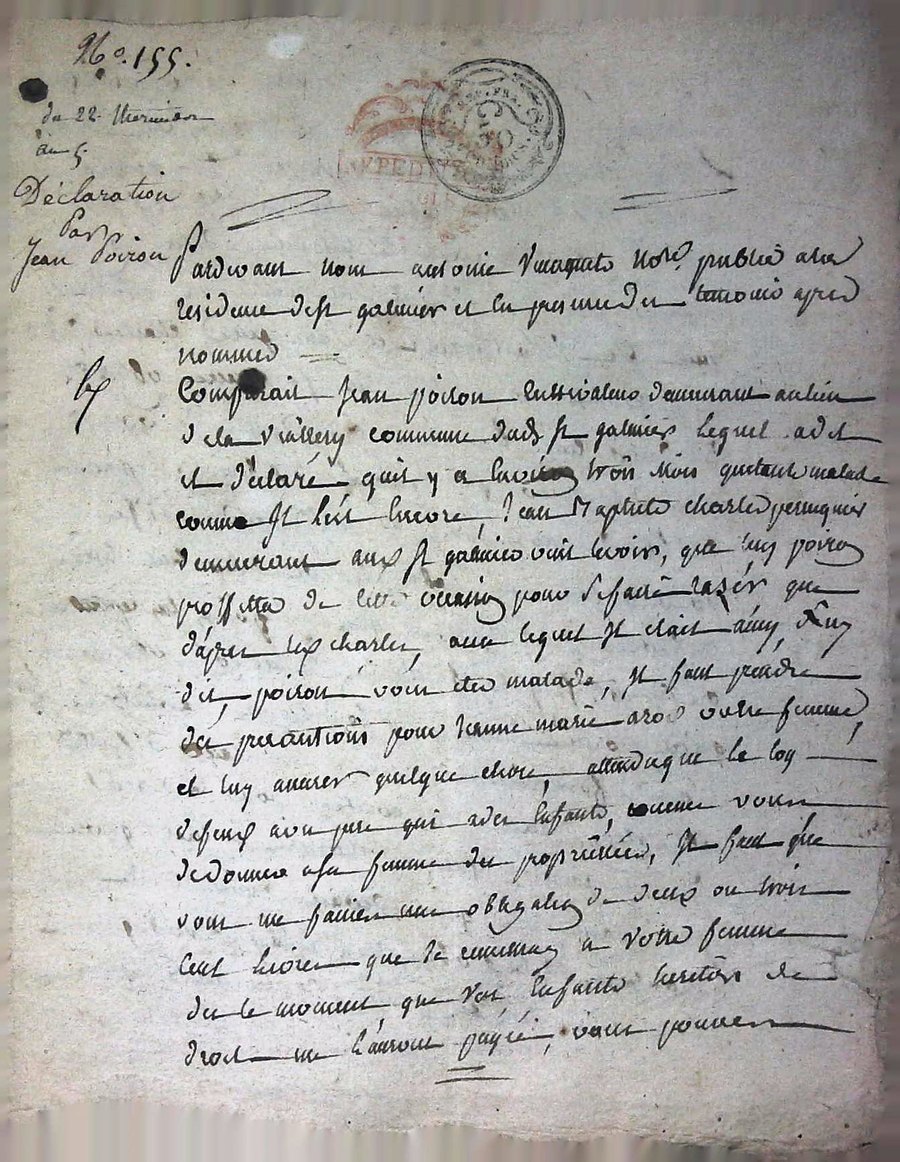 No. 155.
du 22 thermidor
an 5
Déclaration
Par
Jean Poiron
Pardevant nous antoine nore. public a la
residence de st galmier et en presence des temoins apres
nommes
Comparait Jean poiron demeurant au lieu
de la commune dud. st galmier lequel a dit
et déclaré quil y a environ trois mois quetant malade
comme Il l'est Encore, Jean Baptiste charles perruquier
demeurant aud st galmier vint le voir, que luy poiron
proffitta de cette occasion pour se faire razer que
d'apres led charles, avec lequel Il etait amy, luy
dit, poiron vous etes malade, Il faut prendre
des precautions pour Jeanne marie votre femme,
et luy assurer quelque chose, attendu que la loy
defend a un pere qui a des Enfants, comme vous
de donner a sa femme des proprietées, Il faut que
vous me fassiez une obligation de deux ou trois
Cent livres que Je remettray a votre femme
des le moment que vos Enfants heretiers de
droit me l'auront payée, vous pouvez
REP. FRA.